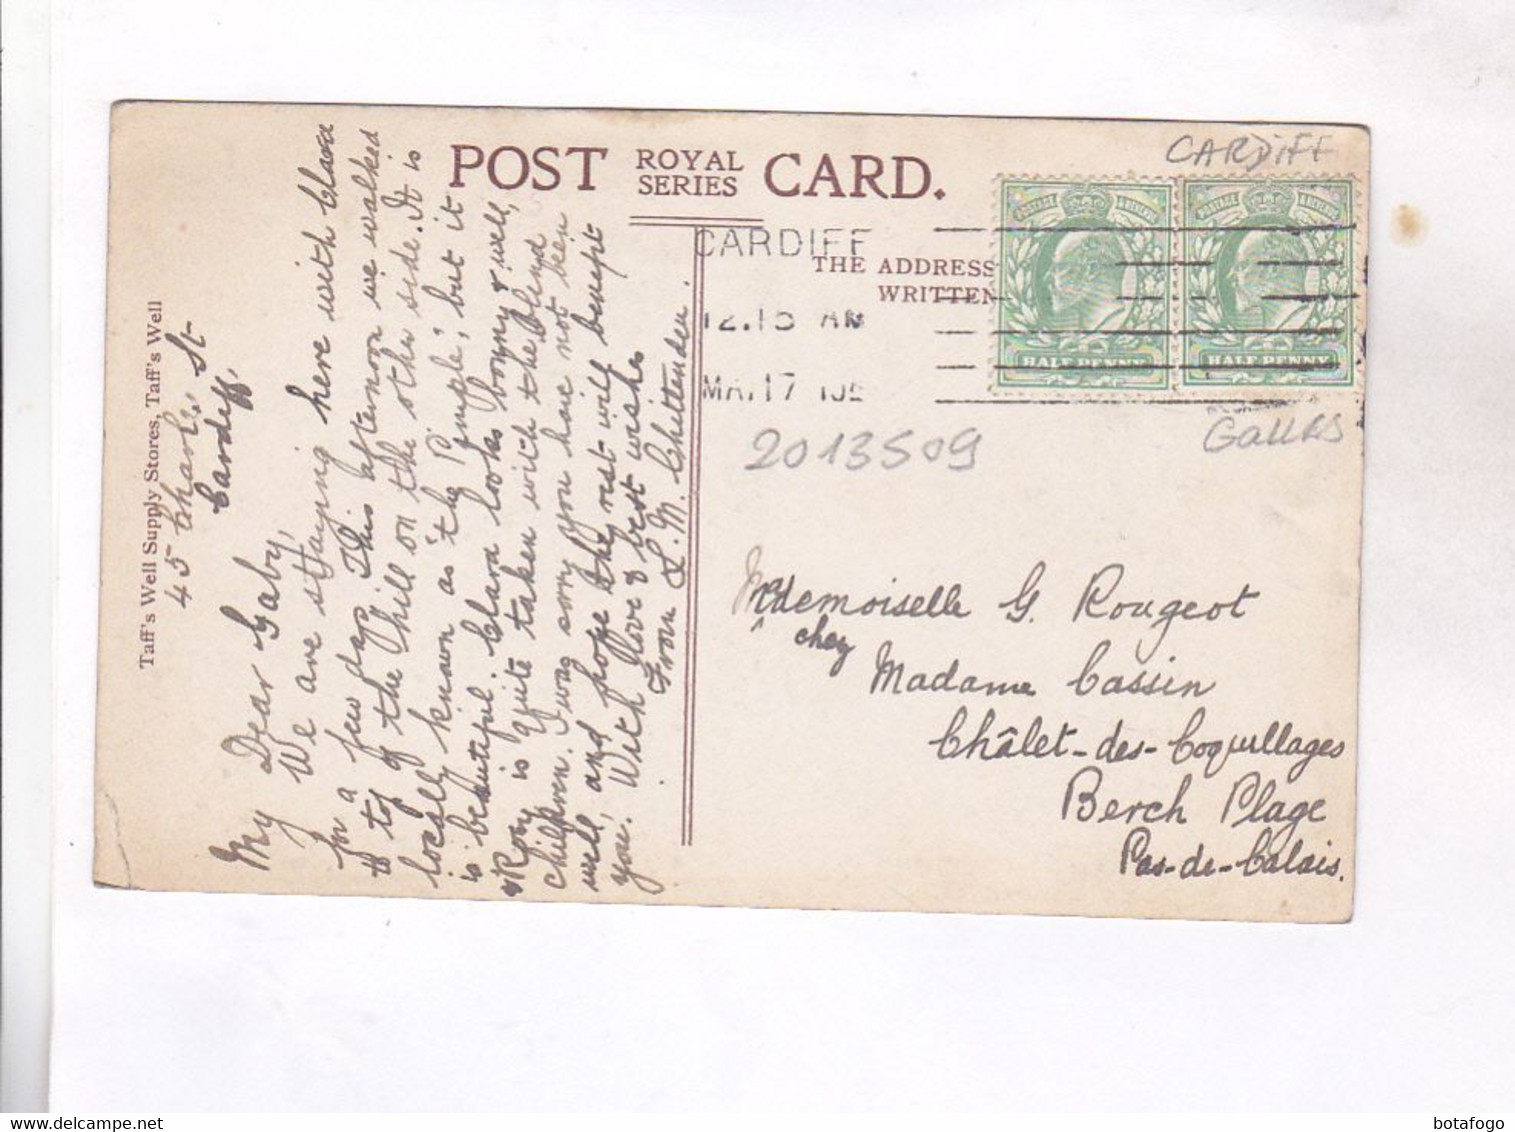 POST ROYAL SERIES CARD.
THE ADDRESS
WRITTEN
CARDIFF
12.15 AM
CARDIFF
POSTAGE & REVENUE
POSTAGE & REVENUE
HALF PENNY
HALF PENNY
GALLES
2013509
Taff's Well Supply Stores, Taff's Well
45 Charles St
Cardiff.
My Dear Gaby,
We are staying here with Clara
for a few days. This afternoon we walked
to top of the hill on the other side. It is
locally known as "the Pimple", but it
is beautiful. Clara looks bonny & well,
& Rory is quite taken with the blind
children. I was sorry you have not been
well, and hope the rest will benefit
you. With love & best wishes
From L. M. Chittenden.
Mdemoiselle G. Rougeot
chez
Madame Cassin
Châlet-des-Coquillages
Berch Plage
Pas-de-Calais.
botafogo